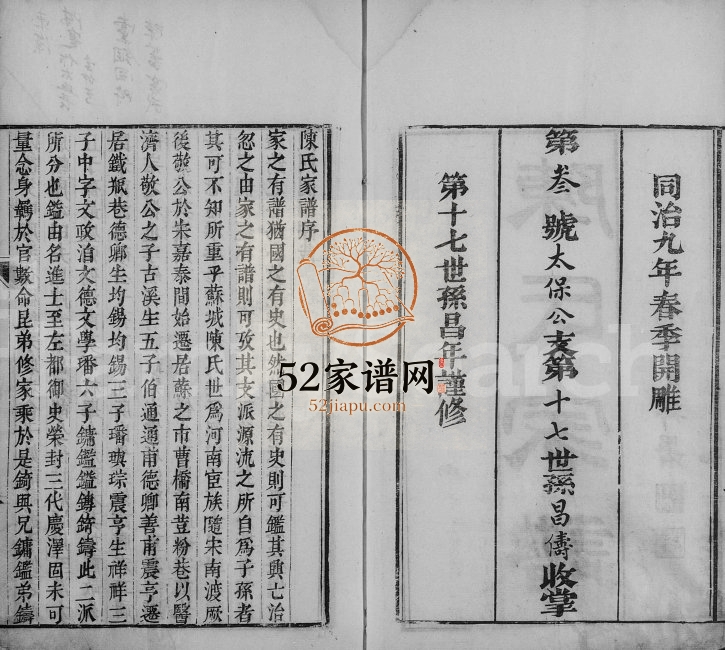 同治九年春季開雕
第叁號太保公支第十七世孫昌儔收掌
第十七世孫昌年謹修
陳氏家譜序
家之有譜猶國之有史也然國之有史則可鑑其興亡治
忽之由家之有譜則可攷其支派源流之所自爲子孫者
其可不知所重乎蘇城陳氏世爲河南宦族隨宋南渡厥
後敬公於宋嘉泰間始遷居蘇之市曹橋南荳粉巷以醫
濟人敬公之子古溪生五子伯通通甫德卿善甫震亨遷
居鐵瓶巷德卿生均錫均錫三子璠璵琮震亨生祥祥三
子中字文政洎文德文學璠六子鏞鑑鎰鏄錡鑄此二派
所分也鎰由名進士至左都御史榮封三代慶澤固未可
量念身羈於官數命昆弟修家乘於是錡與兄鏞鑑弟鑄
52家谱网
52jiapu.com